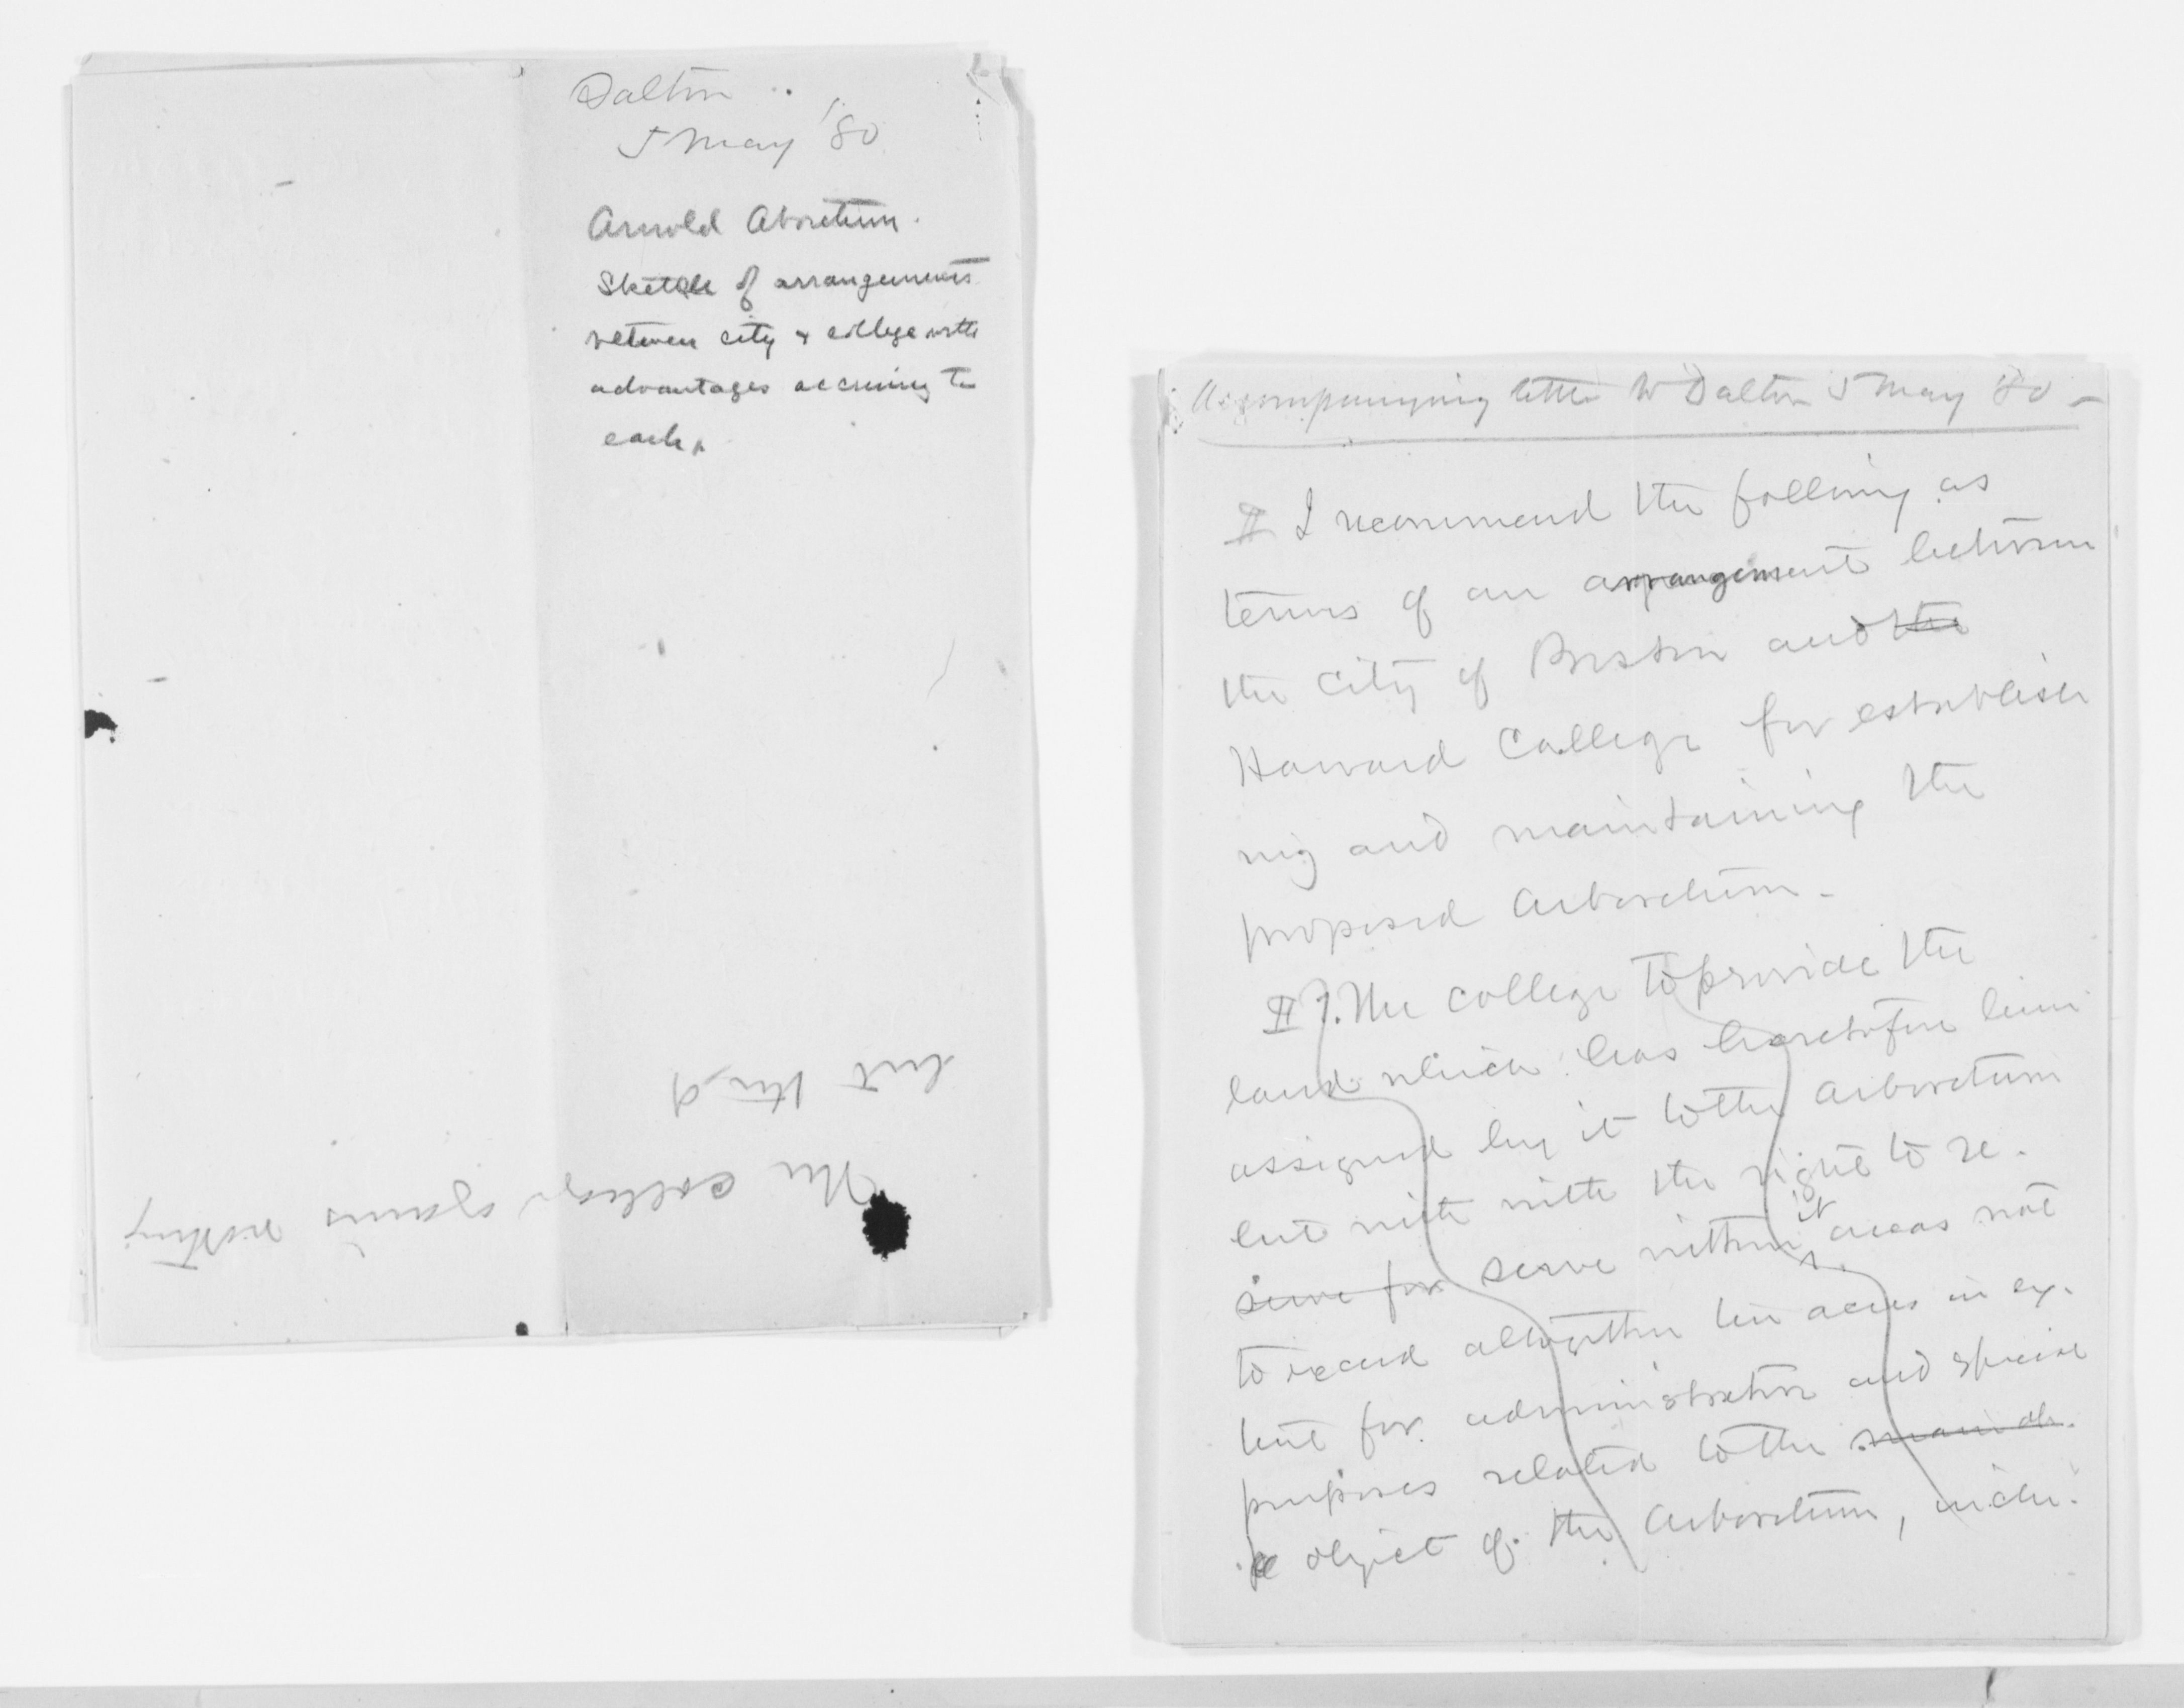 Dalton
5 May '80
Arnold Aboretum.
Sketch of arrangements
between city & college with
advantages accruing to
each.
but the
The college gains nothing
Accompanying letter to Dalton 5 May 80 -
I recommend the following as
terms of an arrangement between
the City of Boston and the
Harvard College for establish
ing and maintaining the
proposed Arboretum -
1. The College to provide the
land which has heretofore been
assigned by it to the Arboretum
but with with the right to re-
serve for serve within it areas not
to exceed altogether ten acres in ex-
tent for administration and special
purposes related to the main ob-
object of the Arboretum, inclu-